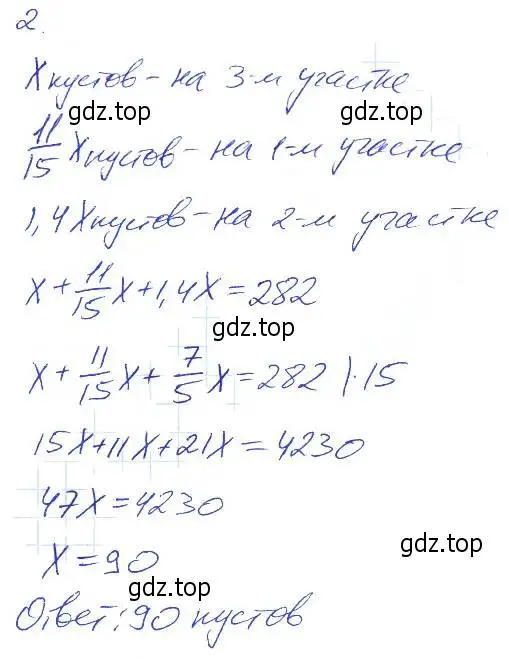 2.
x кустов - на 3-м участке
gdz.top
11/15 x кустов - на 1-м участке
gdz.top
1,4x кустов - на 2-м участке
x + 11/15 x + 1,4x = 282
gdz.top
x + 11/15 x + 7/5 x = 282 | · 15
15x + 11x + 21x = 4230
47x = 4230
gdz.top
x = 90
gdz.top
Ответ: 90 кустов